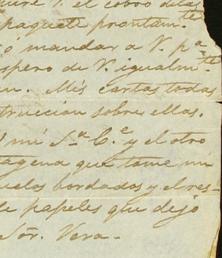 el cobro de las
paquete prontam.te
mandar a V. p.a
spero de V. igualm.te
Mis cartas todas
truccion sobre ellas.
mi S.a C.a y el otro
tagena que tome mi
uelos bordados y el res
e papeles que dejó
Sõr. Vera.